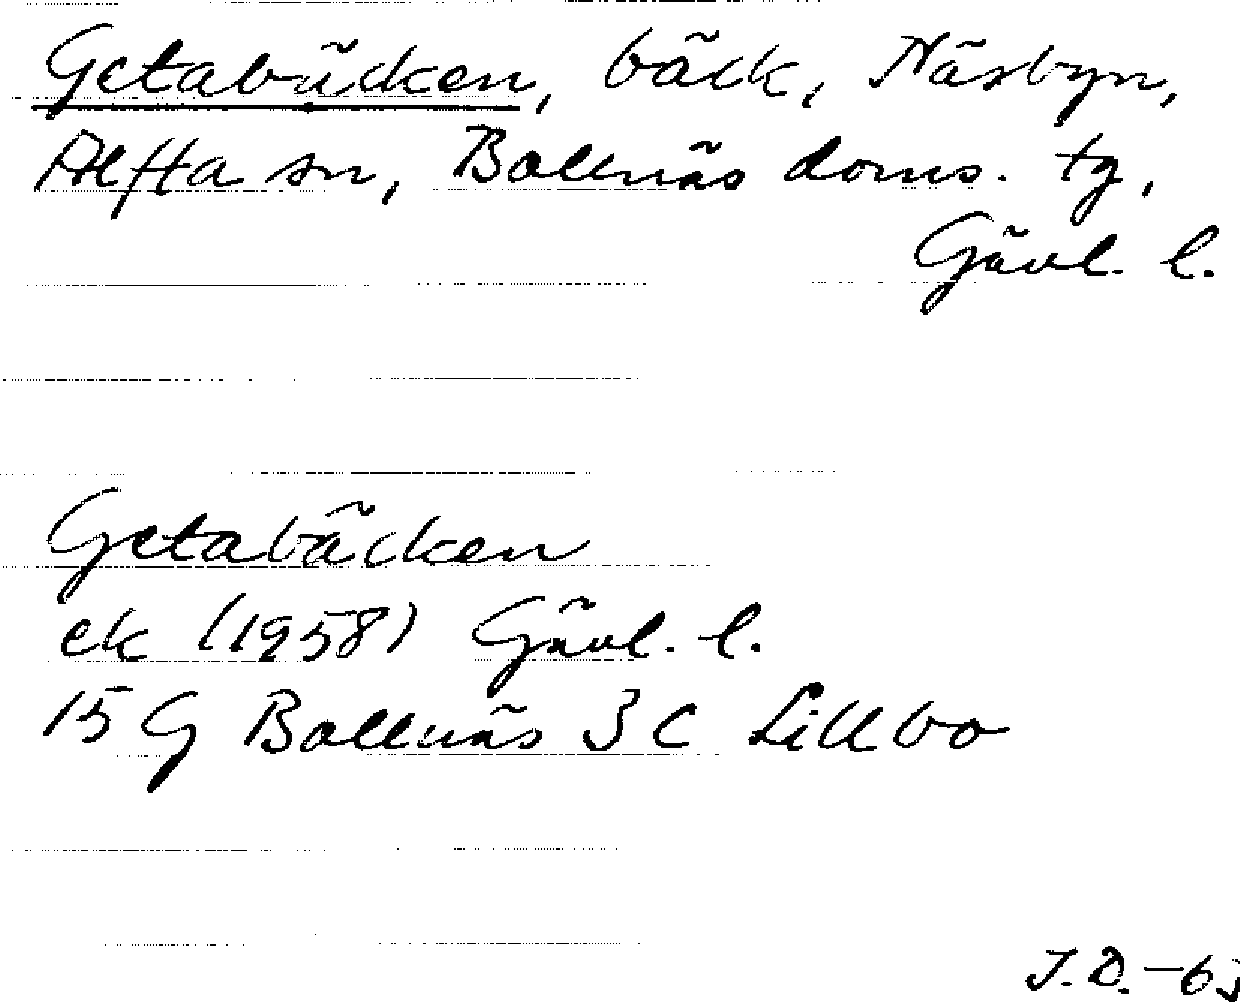 Getabäcken, bäck, Näsbyn,
Alfta sn, Bollnäs doms. tg,
Gävl. l.
Getabäcken
ek (1958) Gävl. l.
15 G Bollnäs 3 C Lillbo
J.D.-63